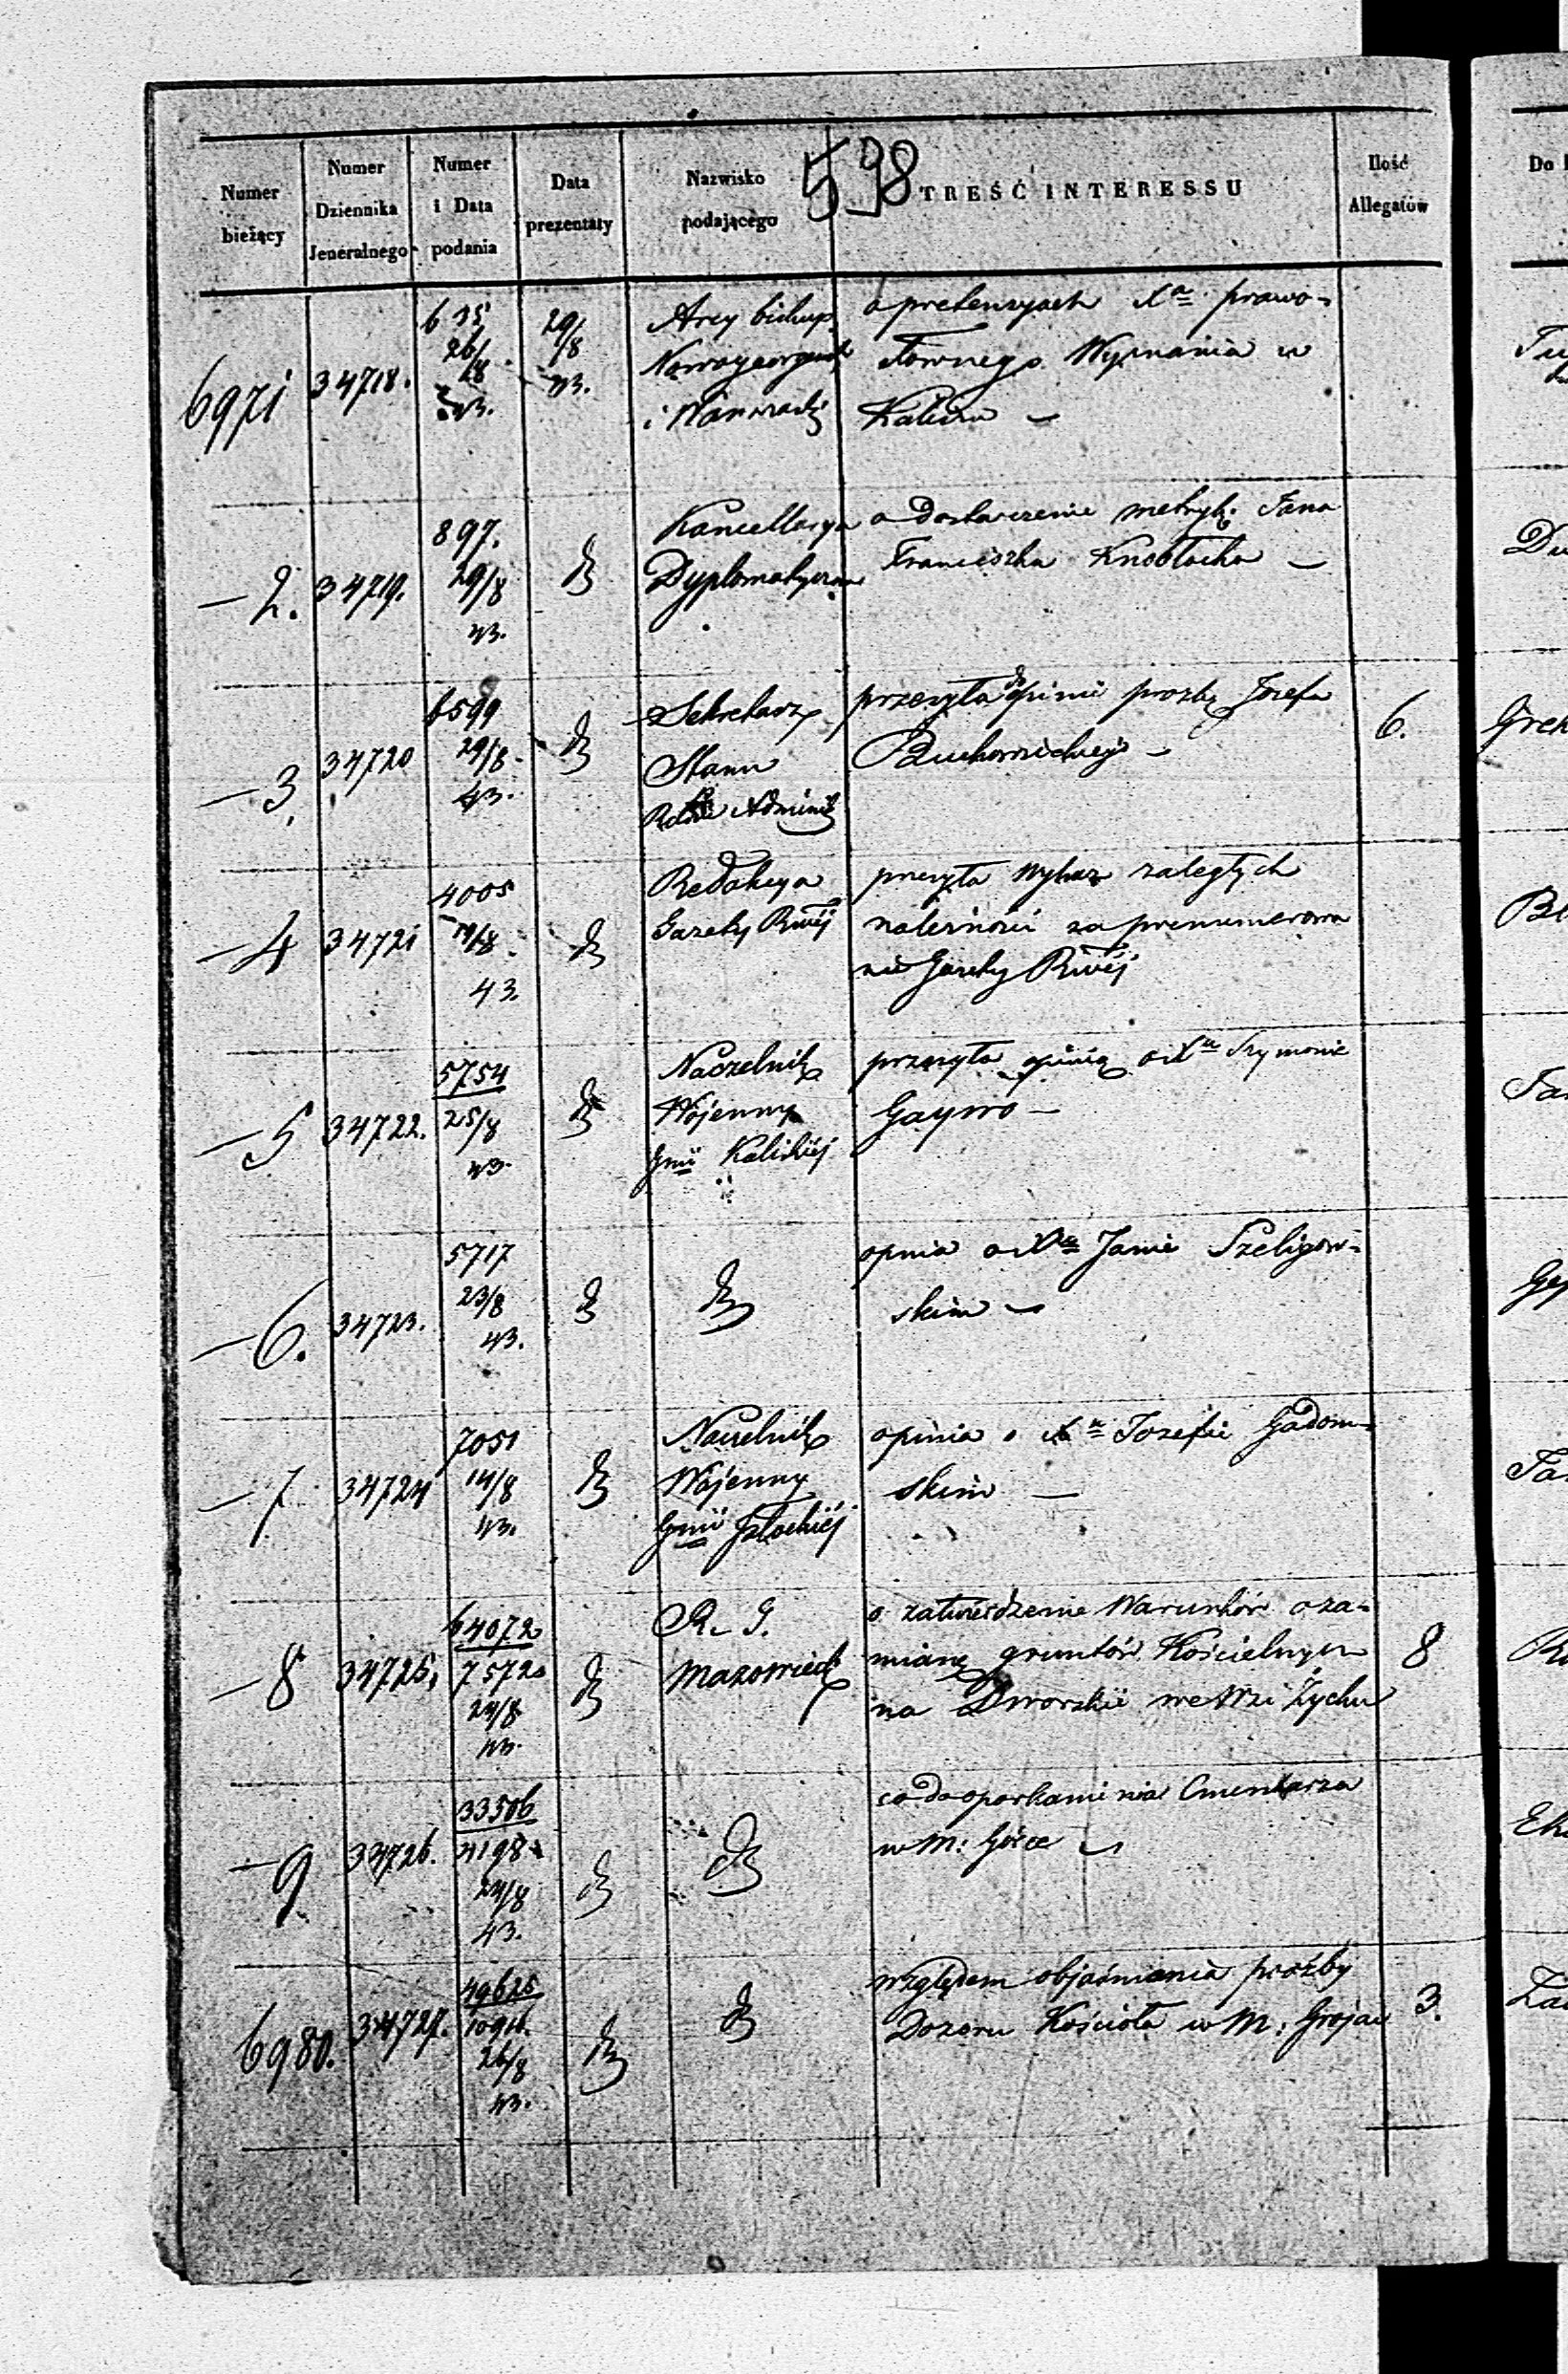 598
Numer bieżący
Numer Dziennika Jeneralnego
Numer i Data podania
Data prezentaty
Nazwisko podającego
TREŚĆ INTERESSU
Ilość Allegatów
Do
6971
34718.
635
26/28
43.
29/8
43.
Arcy biskup
i Warszaws
o pretensyach Xa prawo=
sławnego Wyznania w
Kaliszu —
— 2.
34719.
897.
29/8
43.
Kancellarya
Dyplomatyczna
o dostarczenie metryk: Jana
Franciszka Knobłocha —
— 3.
34720
6599
29/8
43.
Sekretarz
Stanu
Administ
przesyła do opinii prozbę Jozefa
—
6.
— 4
34721
4005
/8
43.
Redakcya
Gazety Rwéj
przesyła wykaz zaległych
należności za prenumerowa
nie Gazety Rwéj
— 5
34722.
5754
25/8
43.
Naczelnik
Wojenny
Gnii Kaliskiéj
przesyła opinią o Xu Szymonie
Gaywo —
— 6.
34723.
5717
23/8
43.
opnia o Xu Janie Szeligow=
skim —
— 7
34724
7051
14/8
43.
Naczelnik
Wojenny
Gnii Płockiéj
opinia o Xu Jozefie Gadom=
skim —
— 8
34725.
64072
75720
24/8
43.
R. G.
Mazowieck
o zatwierdzenie Warunków o za=
mianę gruntów Kościelnych
na Dworskie we Wsi Zychu
8
— 9
34726.
33506
4198
24/8
43.
co do oparkanienia Cmentarza
w M: Górze
6980.
34727.
49625
26/8
43.
względem objaśnienia prośby
Dozoru Kościoła w M: Grojcu
3.